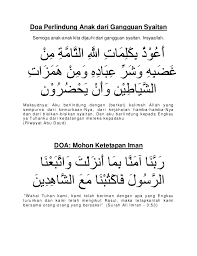 Doa Perlindung Anak dari Gangguan Syaitan
Semoga anak-anak kita dijauhi dari gangguan syaitan. Insyaallah.
أَعُوْذُ بِكَلِمَاتِ اللَّهِ التَّامَّةِ مِنْ
غَضَبِهِ وَشَرِّ عِبَادِهِ وَمِنْ هَمَزَاتِ
الشَّيَاطِيْنِ وَأَنْ يَحْضُرُوْنِ
Maksudnya: Aku berlindung dengan (berkat) kalimah Allah yang
sempurna dari kemurkaan-Nya, dari kejahatan hamba-hamba-Nya
dan dari bisikan-bisikan syaitan. Dan aku berlindung kepada Engkau
ya Tuhanku dari kedatangan mereka kepadaku.
(Riwayat Abu Daud)
DOA: Mohon Ketetapan Iman
رَبَّنَا آمَنَّا بِمَا أَنزَلْتَ وَاتَّبَعْنَا
الرَّسُولَ فَاكْتُبْنَا مَعَ الشَّاهِدِينَ
"Wahai Tuhan kami, kami telah beriman dengan apa yang Engkau
turunkan dan kami telah mengikut Rasul, maka tetapkanlah kami
bersama orang-orang yang bersaksi" (Surah Ali Imran - 3:53)